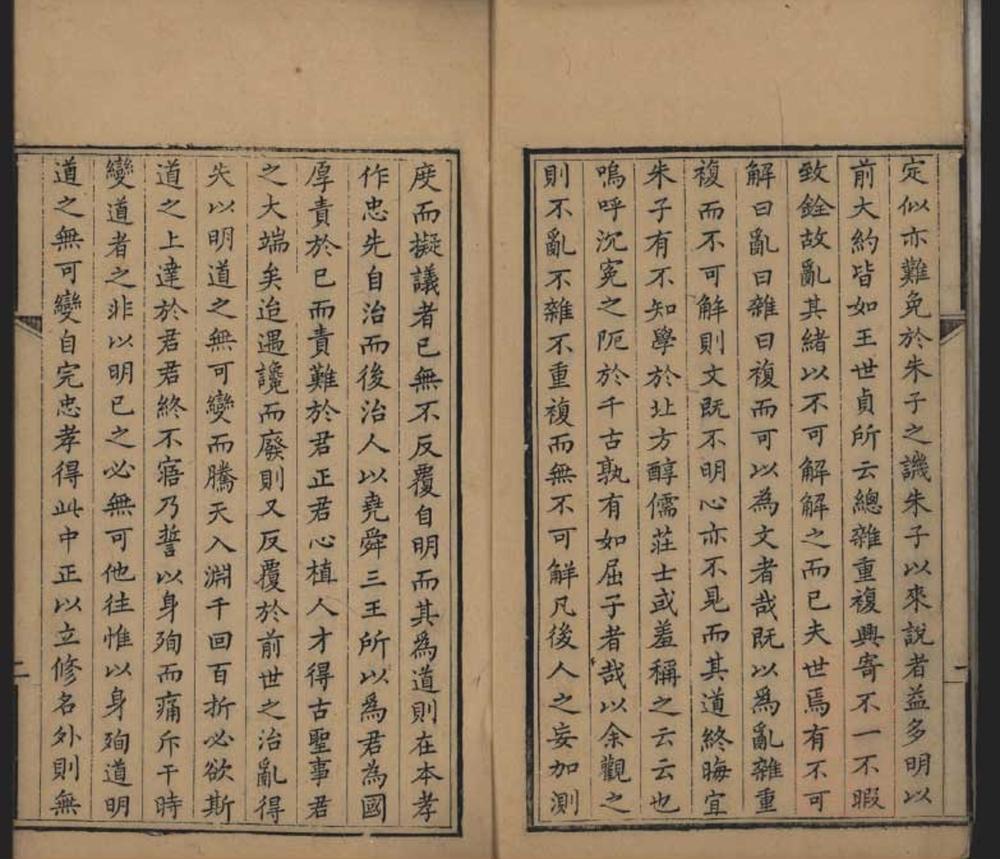 定似亦難免於朱子之譏朱子以來說者益多明以
前大約皆如王世貞所云總雜重複興寄不一不暇
致銓故亂其緒以不可解解之而已夫世焉有不可
解曰亂曰雜曰複而可以為文者哉既以爲亂雜重
複而不可解則文既不明心亦不見而其道終晦宜
朱子有不知學於北方醇儒莊士或羞稱之云云也
嗚呼沉冤之阨於千古孰有如屈子者哉以余觀之
則不亂不雜不重複而無不可解凡後人之妄加測
度而擬議者已無不反覆自明而其爲道則在本孝
作忠先自治而後治人以堯舜三王所以爲君為國
厚責於已而責難於君正君心植人才得古聖事君
之大端矣迨遇讒而廢則又反覆於前世之治亂得
失以明道之無可變而騰天入淵千回百折必欲斯
道之上達於君君終不寤乃誓以身殉而痛斥干時
變道者之非以明已之必無可他往惟以身殉道明
道之無可變自完忠孝得此中正以立修名外則無
一
二